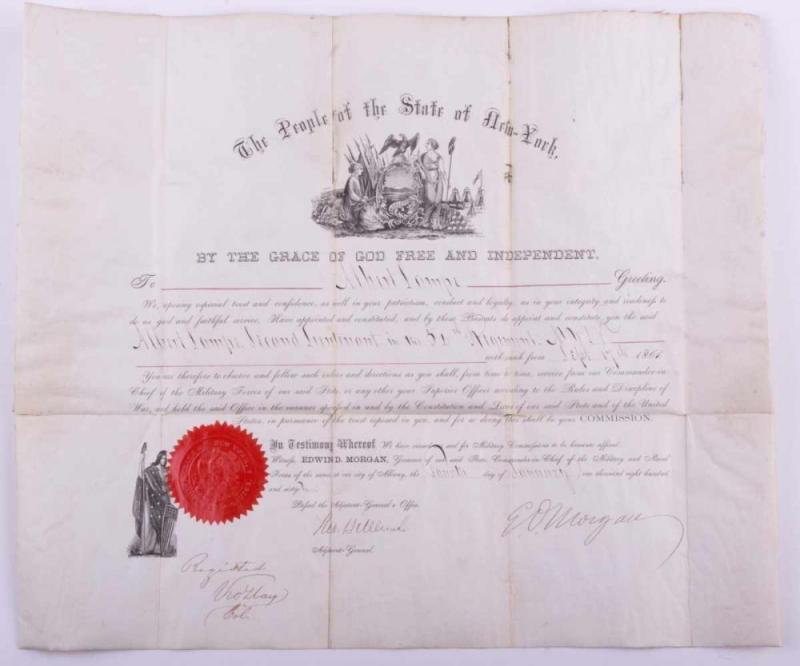 The People of the State of New-York,
BY THE GRACE OF GOD FREE AND INDEPENDENT.
To Albert Greeting.
We, reposing especial trust and confidence, as well in your patriotism, conduct and loyalty, as in your integrity and readiness to
do us good and faithful service, Have appointed and constituted, and by these Presents do appoint and constitute you the said
Albert Second Lieutenant in the Regiment,
with rank from Sept 186
You are therefore to observe and follow such orders and directions as you shall, from time to time, receive from our Commander-in-
Chief of the Military Forces of our said State, or any other your Superior Officer according to the Rules and Discipline of
War, and hold the said Office in the manner specified in and by the Constitution and Laws of our said State and of the United
States, in pursuance of the trust reposed in you, and for so doing this shall be your COMMISSION.
In Testimony Whereof, We have our Seal for Military Commissions to be hereunto affixed.
Witness, EDWIN D. MORGAN, Governor of our said State, Commander-in-Chief of the Military and Naval
Forces of the same at our city of Albany, the fourth day of January one thousand eight hundred
and sixty
Passed the Adjutant-General's Office.
E. D. Morgan
Adjutant-General.
Registered
Col.